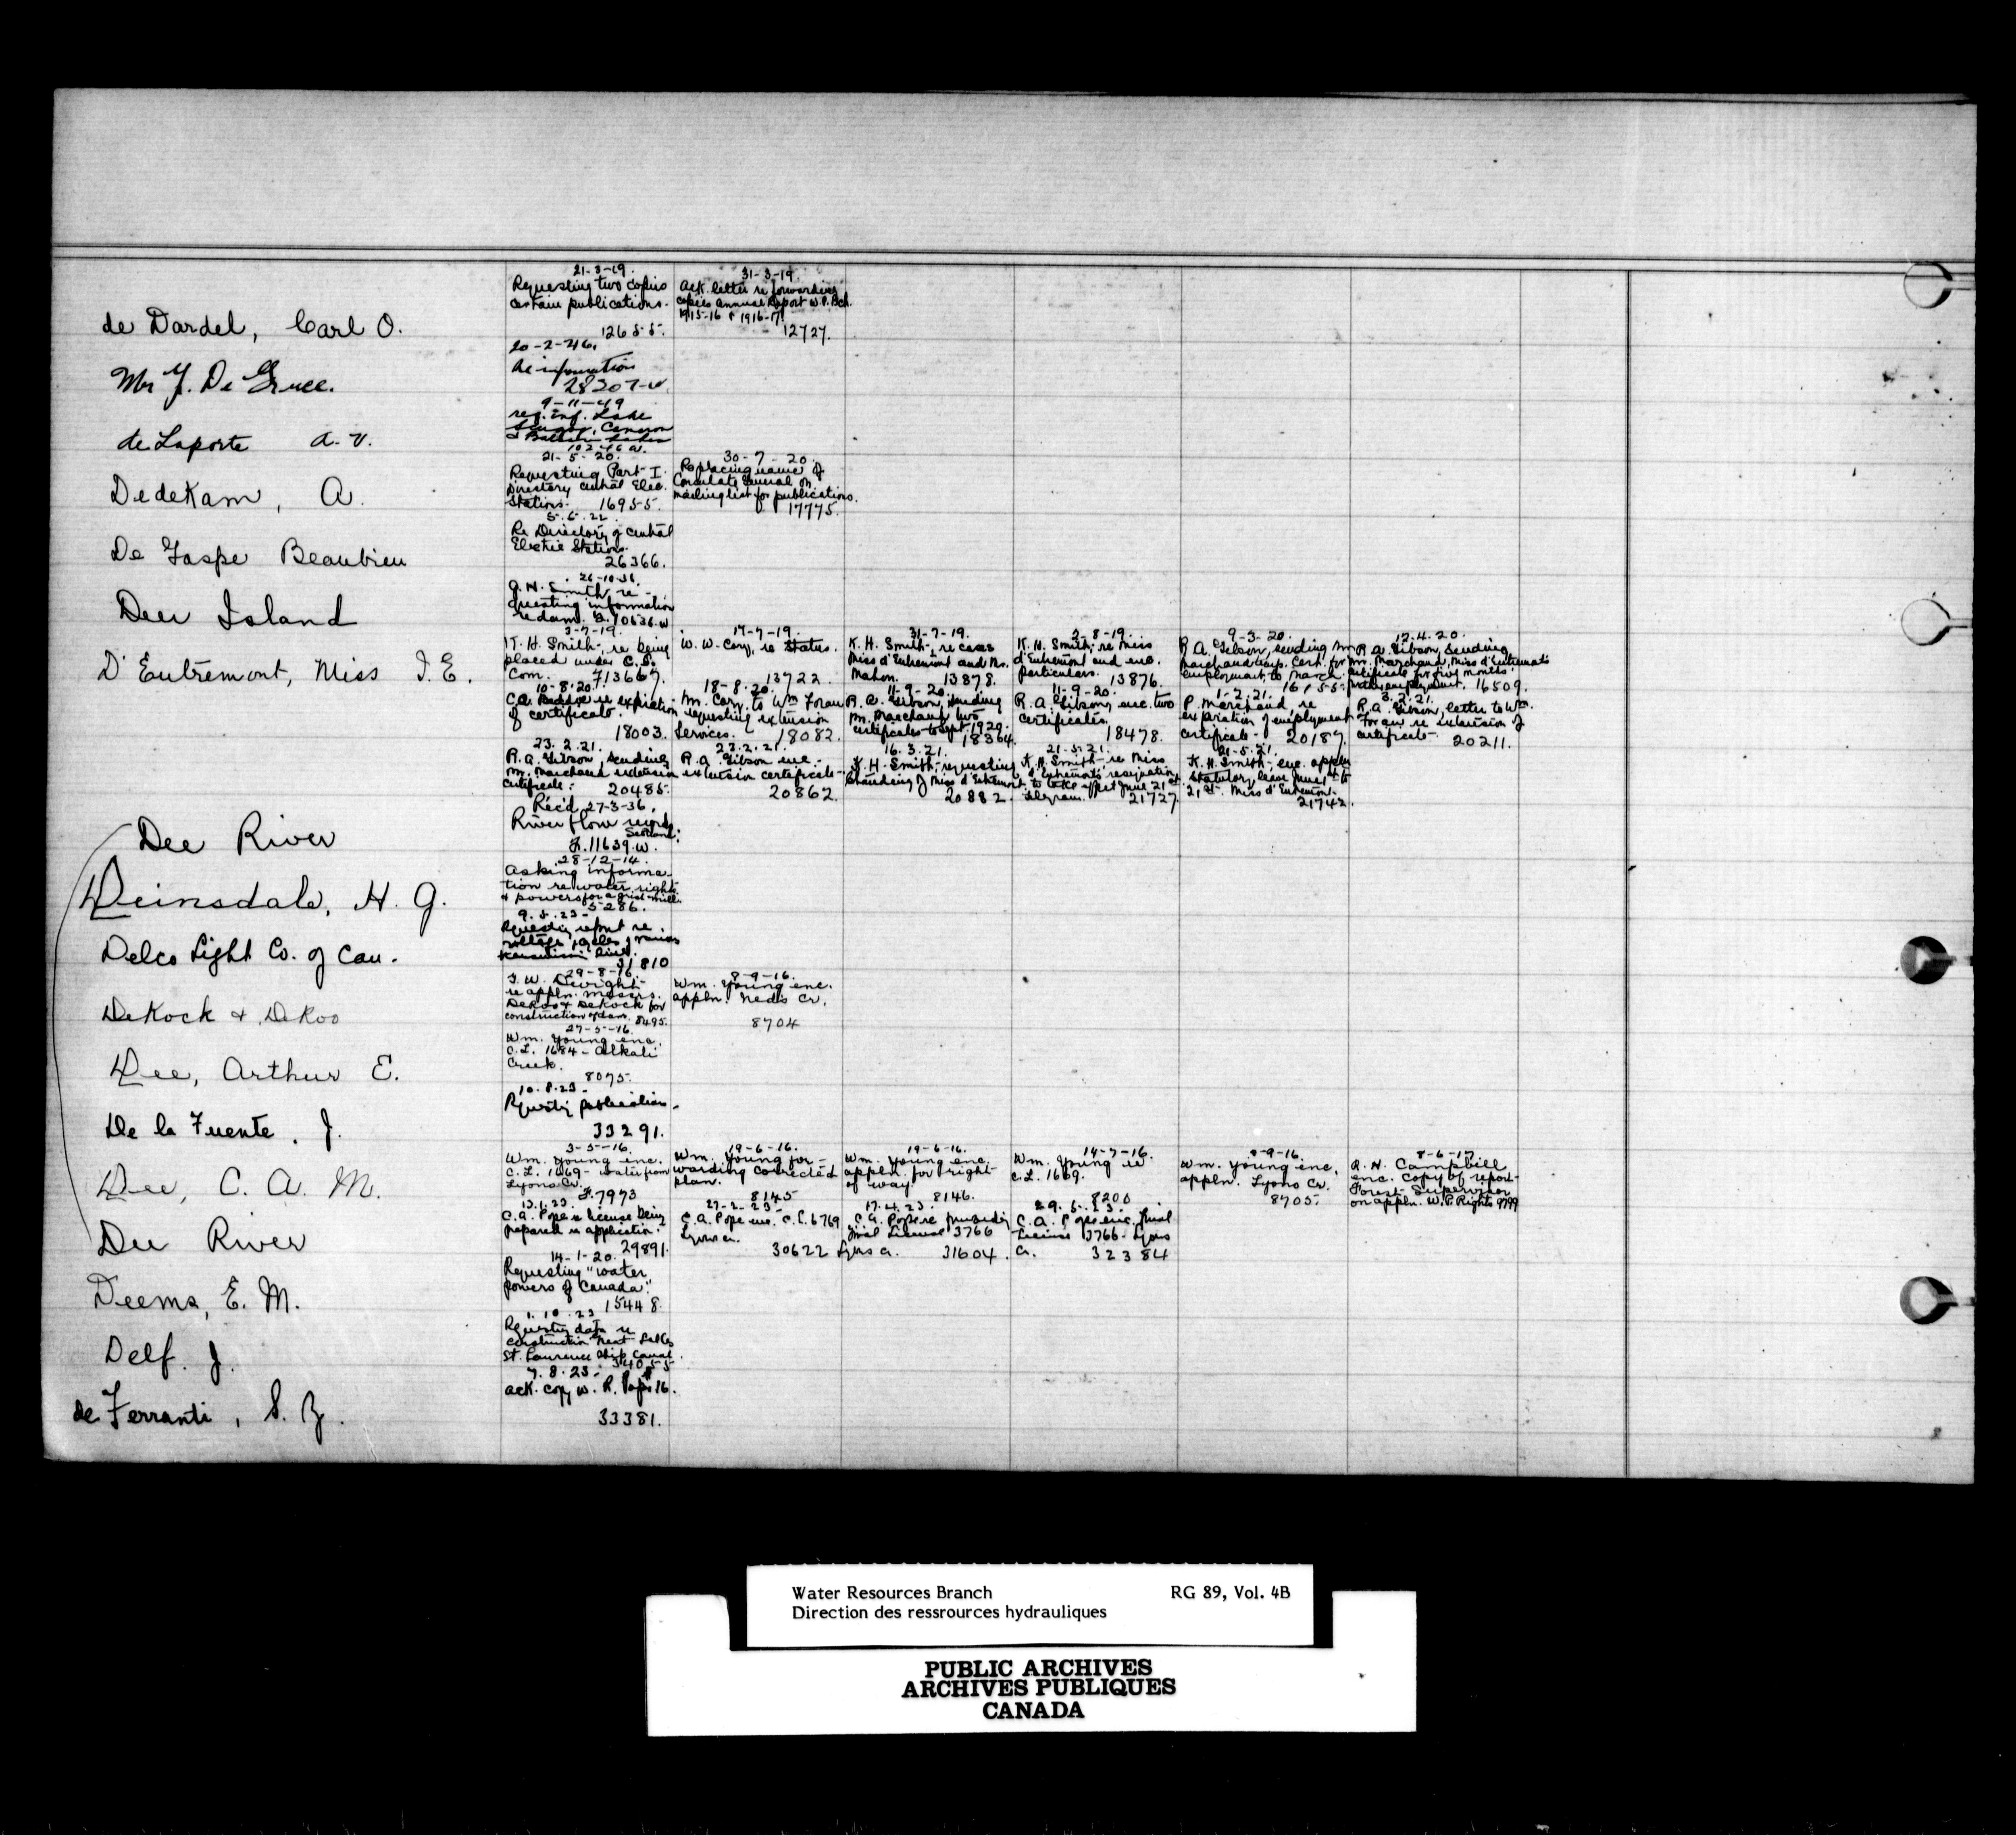 de Dardel, Carl O.
21-3-19.
Requesting two copies
certain publications.
12655.
31-3-19.
Ack. letter re forwarding
copies annual Report W.P. Bch.
1915-16 & 1916-17.
12727.
Mr J. De Gruce.
20-2-46.
Re information
28207-W
de Laporte A. V.
9-11-49
req. inf. Lake
Canyon
Dedekam, A.
21-5-20.
Requesting Part I
Directory Central Elec.
Stations. 16955.
30-7-20.
Replacing name of
Consulate General on
mailing list for publications.
17775.
De Gaspe Beaubien
5.6.22.
Re Directory of Central
Electric Stations.
26366.
Deer Island
26-10-31.
G. N. Smith, re-
questing information
re dam. 10636.W
D'Entremont, Miss I. E.
3-7-19.
K. H. Smith, re being
placed under C.S.
Com. 713667.
17-7-19.
W. W. Cory, re Status.
13722
31-7-19.
K. H. Smith, re cases
Miss d'Entremont and Mr.
Mahon. 13878.
2-8-19.
K. H. Smith, re Miss
d'Entremont and enc.
particulars. 13876.
9-3-20.
R. A. Gibson, sending Mr
Marchand temp. Cert. for
employment, to March.
12.4.20.
R. A. Gibson, sending
Mr. Marchand, Miss d'Entremont's
certificate for five months'
further employment. 16509.
10-8-20.
re expiration
of certificate.
18003.
18-8-20.
Mr. Cory, to Wm Foran
requesting extension
services. 18082.
11-9-20.
R. A. Gibson, sending
Mr. Marchand two
certificates to Sept. 1920.
18364.
11-9-20.
R. A. Gibson, enc. two
certificates.
18478.
1-2.21.
P. Marchand, re
expiration of employment
certificate. 20187.
3.2.21.
R. A. Gibson, letter to Wm.
Foran re extension of
certificate. 20211.
23.2.21.
R. A. Gibson, sending
Mr. Marchand extension
certificate. 20485.
R. A. Gibson enc.
extension certificate.
20862.
16.3.21.
K. H. Smith, requesting
standing of Miss d'Entremont.
20882.
21.5.21.
K. H. Smith re Miss
d'Entremont's resignation
to take effect June 21st
telegram. 21727.
21-5.21.
K. H. Smith, enc. appln
statutory leave June 1st to
21st. Miss d'Entremont.
21742.
Dee River
Rec'd 27-3-36.
River flow records
Scotland.
F.11639.W.
Deinsdale, H. G.
28-12-14.
Asking informa-
tion re water rights
& powers for a grist-mill.
5286.
Delco Light Co. of Can.
9.5.23.
Requesting report re
voltage, cycles, various
transmission lines.
31810
DeKock & DeKoo
29-8-16.
Dwight
re appln. Messrs.
DeKoo & DeKock for
construction of dam. 8495.
8-9-16.
Wm. Young enc.
appln. Neds Cr.
8704
Dee, Arthur E.
27-5-16.
Wm. Young enc.
C.L. 1684 - Alkali
Creek.
8075.
De la Fuente, J.
10.8.23.
Requestg publication.
33291.
Dee, C. A. M.
3-5-16.
Wm. Young enc.
C.L. 1669 - water from
Lyons Cr.
7973
19-6-16.
Wm. Young for-
warding corrected
plan.
8145
19-6-16.
Wm. Young enc.
appln. for right
of way.
8146.
14-7-16.
Wm. Young re
C.L. 1669.
8200
8-9-16.
Wm. Young enc.
appln. Lyons Cr.
8705.
8-6-17.
R. N. Campbell
enc. copy of report
Forest Supervisor
on appln. W.P. Rights 9799
Dee River
13.1.23.
C.A. Pope re license being
prepared re application.
29891.
27-2-23.
C. A. Pope enc. C.L. 6769
Lyons Cr.
30622
17.4.23.
C. A. Pope re
Final License 3766
Lyons Cr. 31604.
29.5.23.
C. A. Pope enc. Final
License 3766 - Lyons
Cr. 32384
Deems, E. M.
14-1-20.
Requesting "water
powers of Canada."
15448.
Delf. J.
1.10.23
Requesting data re
construction Great Lakes
St. Lawrence Ship Canal.
34055
de Ferranti, S. Z.
7.8.23.
Ack. copy W. R. Paper 16.
33381.
Water Resources Branch RG 89, Vol. 4B
Direction des ressrources hydrauliques
PUBLIC ARCHIVES
ARCHIVES PUBLIQUES
CANADA